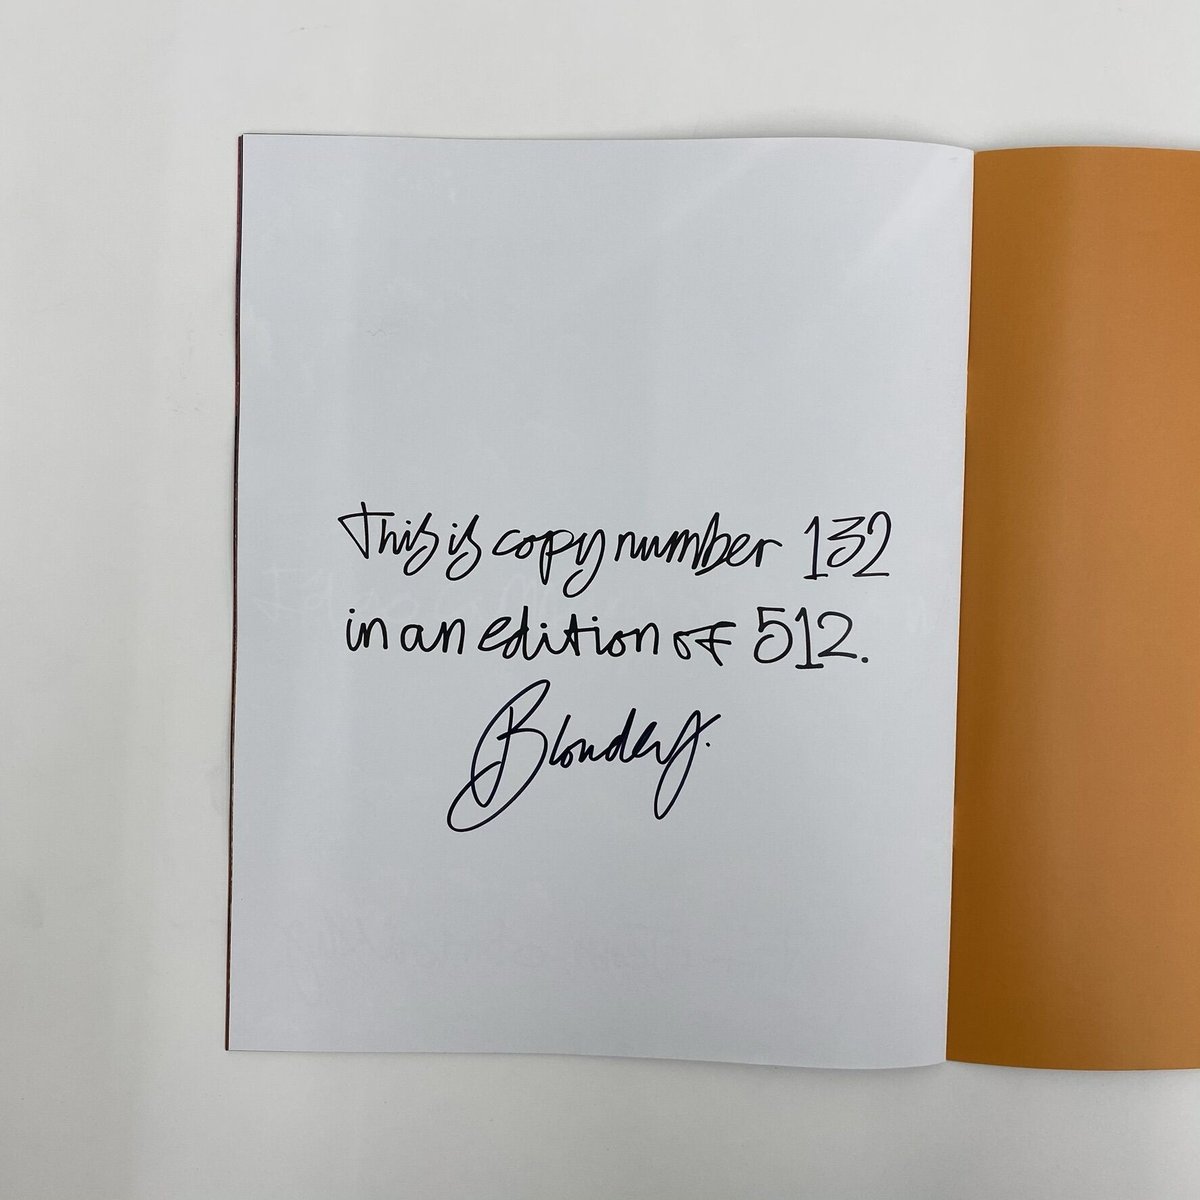 This is copy number 132
in an edition of 512.
Blondey.